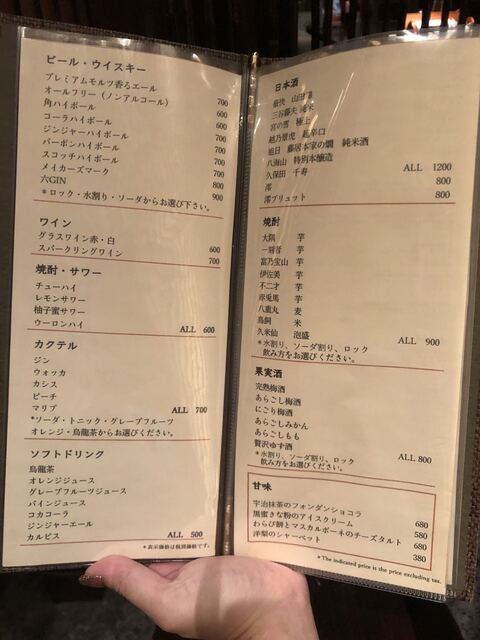 ビール・ウイスキー
プレミアムモルツ香るエール 700
オールフリー（ノンアルコール） 600
角ハイボール 600
コーラハイボール 700
ジンジャーハイボール 700
バーボンハイボール 700
スコッチハイボール 700
メイカーズマーク 800
六GIN 900
＊ロック・水割り・ソーダからお選び下さい。
ワイン
グラスワイン赤・白 600
スパークリングワイン 700
焼酎・サワー
チューハイ
レモンサワー
柚子蜜サワー
ウーロンハイ ALL 600
カクテル
ジン
ウォッカ
カシス
ピーチ
マリブ ALL 700
＊ソーダ・トニック・グレープフルーツ
オレンジ・烏龍茶からお選びください。
ソフトドリンク
烏龍茶
オレンジジュース
グレープフルーツジュース
パインジュース
コカコーラ
ジンジャーエール
カルピス ALL 500
＊表示価格は税別価格です。
日本酒
三谷藤夫 純米
宮の雪 極上
越乃景虎 超辛口
旭日 藤居本家の燗 純米酒
八海山 特別本醸造
久保田 千寿 ALL 1200
澪 800
澪ブリュット 800
焼酎
大隅 芋
一刻者 芋
富乃宝山 芋
伊佐美 芋
不二才 芋
赤兎馬 芋
八重丸 麦
鳥飼 米
久米仙 泡盛 ALL 900
＊水割り、ソーダ割り、ロック
飲み方をお選びください。
果実酒
完熟梅酒
あらごし梅酒
にごり梅酒
あらごしみかん
あらごしもも
贅沢ゆず酒 ALL 800
＊水割り、ソーダ割り、ロック
飲み方をお選びください。
甘味
宇治抹茶のフォンダンショコラ 680
黒蜜きな粉のアイスクリーム 580
わらび餅とマスカルポーネのチーズタルト 680
洋梨のシャーベット 380
* The indicated price is the price excluding tax.